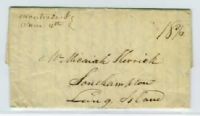 18¾
Mr Micaiah Herrick
Southampton
Long Island